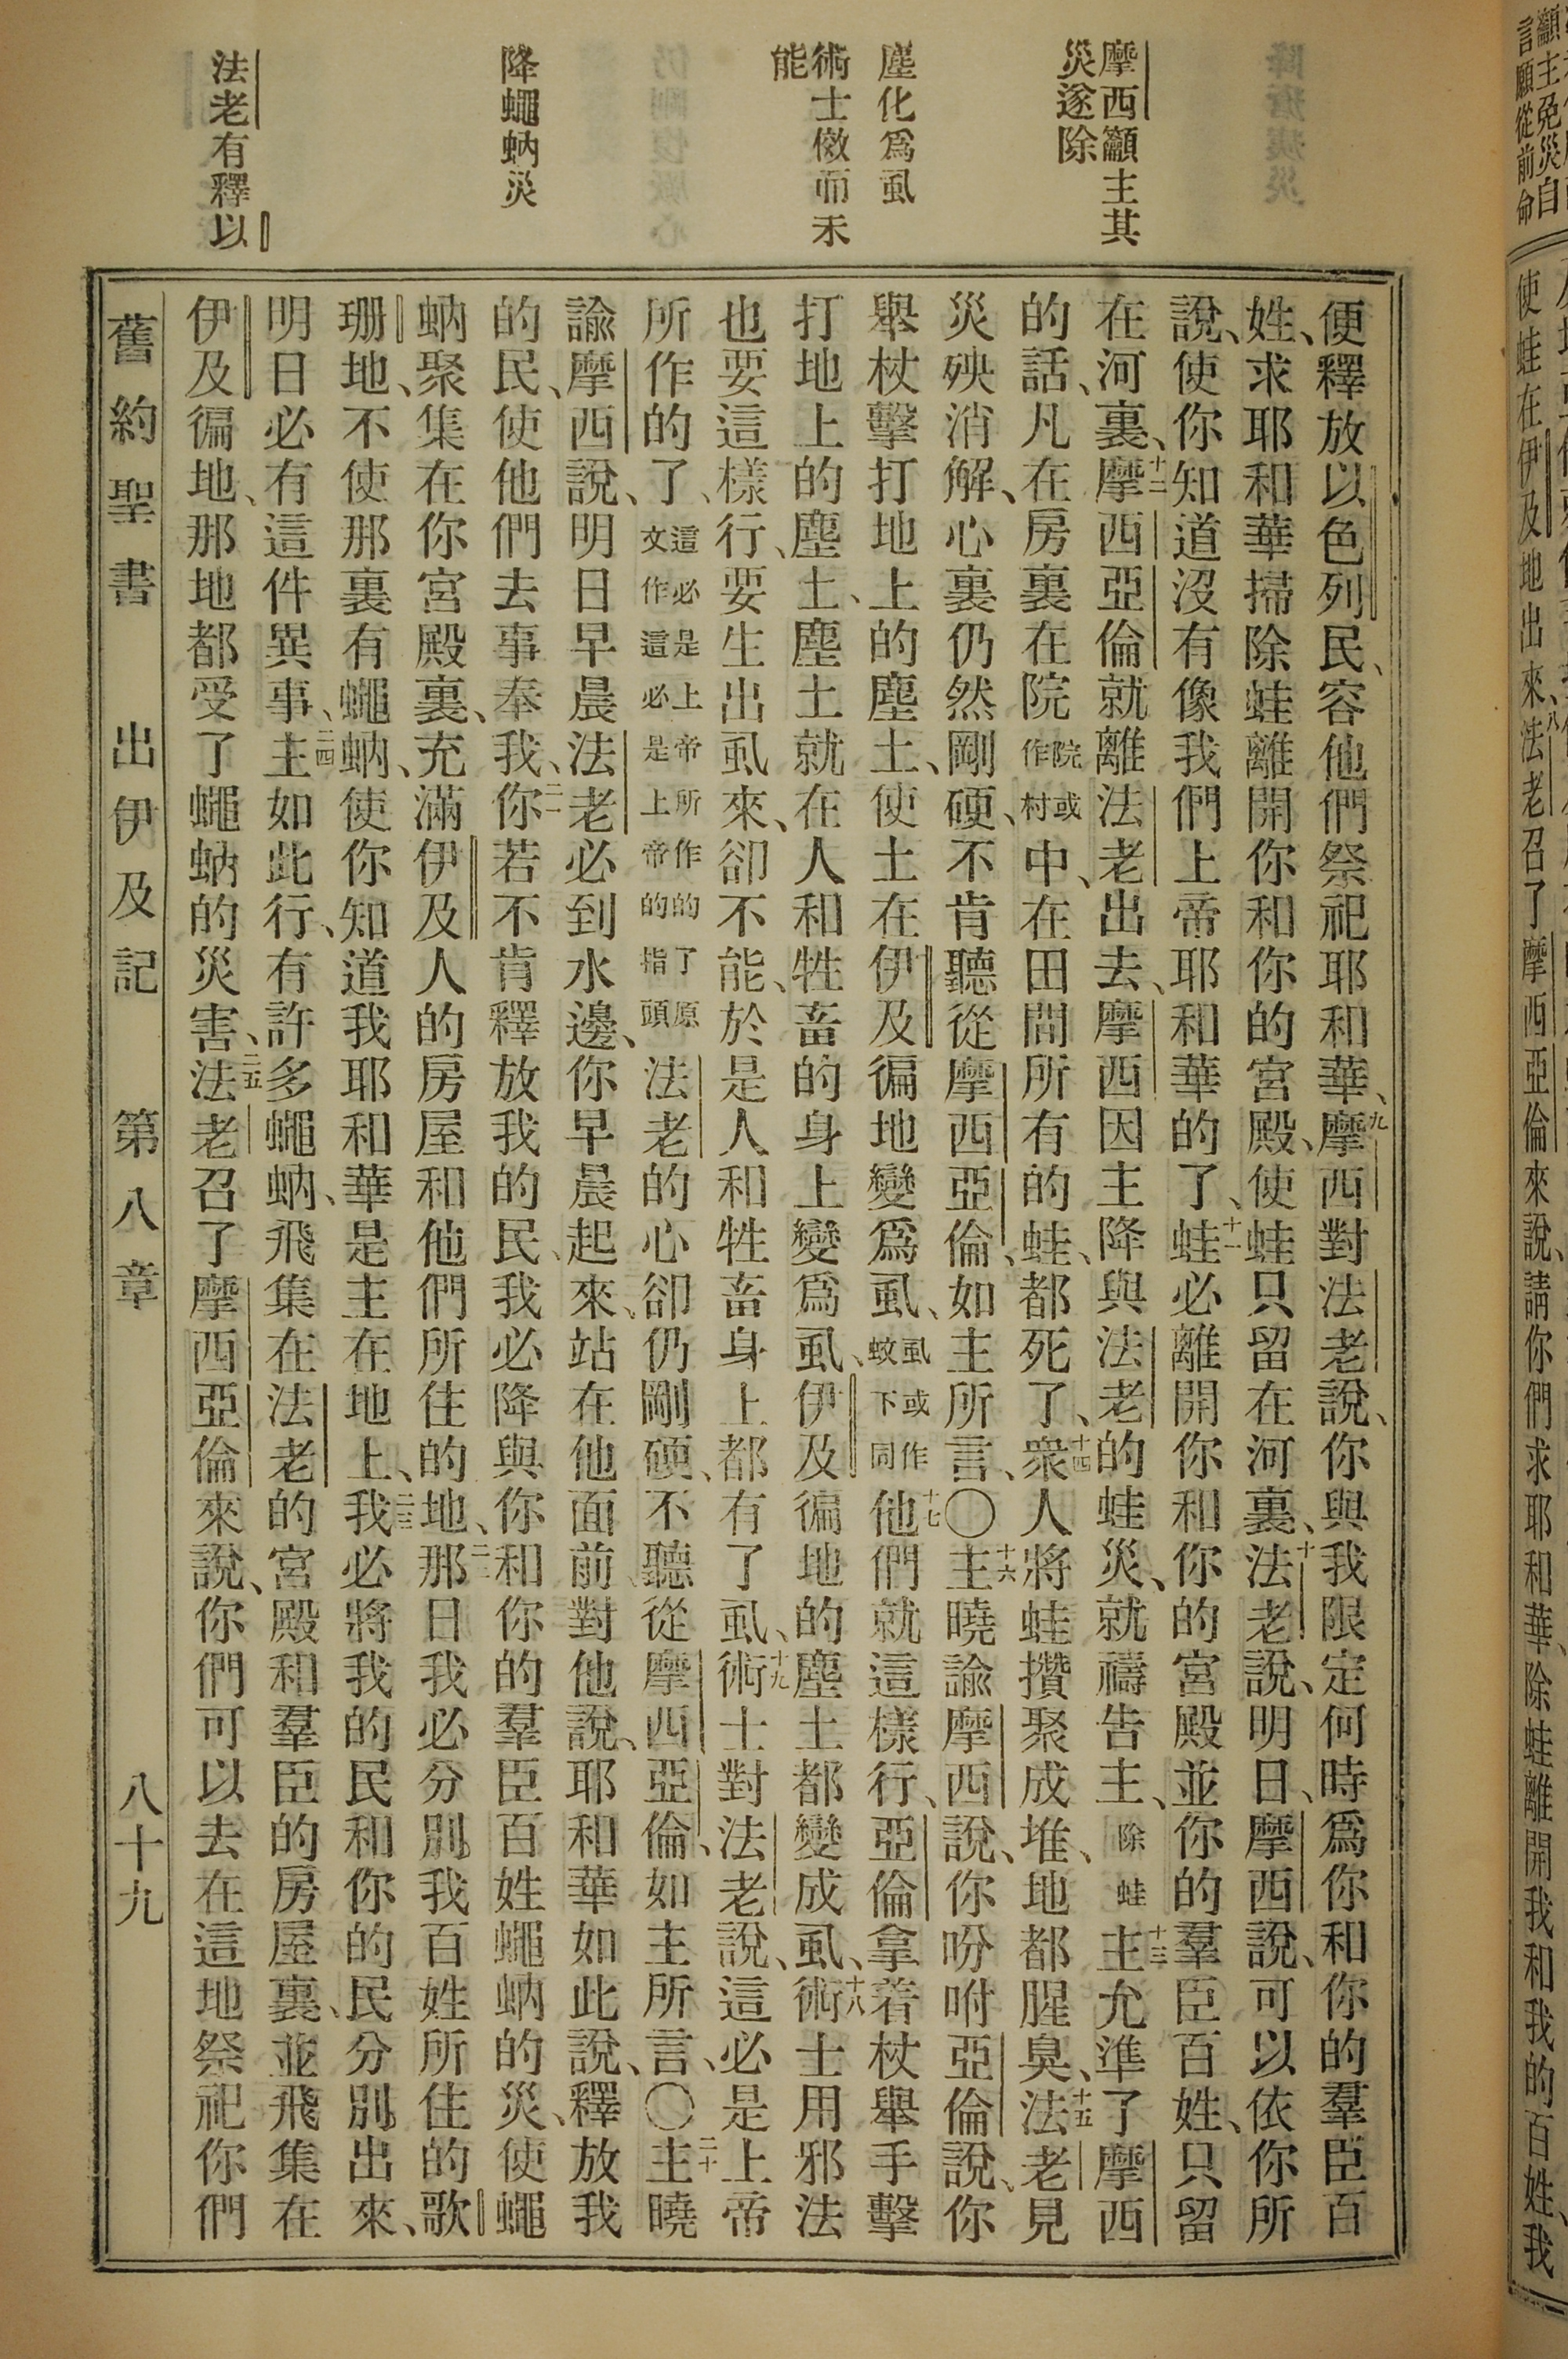 摩西籲主其
災遂除
塵化爲虱
術士傚而未
能
降蠅蚋災
法老有釋以
便釋放以色列民、容他們祭祀耶和華、九摩西對法老說、你與我限定何時爲你和你的羣臣百
姓、求耶和華掃除蛙離開你和你的宮殿、使蛙只留在河裏、十法老說、明日、摩西說、可以依你所
說、使你知道沒有像我們上帝耶和華的了、十一蛙必離開你和你的宮殿並你的羣臣百姓、只留
在河裏、十二摩西亞倫就離法老出去、摩西因主降與法老的蛙災、就禱告主、除蛙十三主允準了摩西
的話、凡在房裏在院院或作村中、在田間所有的蛙、都死了、十四衆人將蛙攢聚成堆、地都腥臭、十五法老見
災殃消解、心裏仍然剛硬、不肯聽從摩西亞倫、如主所言、〇十六主曉諭摩西說、你吩咐亞倫說、你
舉杖擊打地上的塵土、使土在伊及徧地變爲虱、虱或作蚊下同十七他們就這樣行、亞倫拿着杖舉手擊
打地上的塵土、塵土就在人和牲畜的身上變爲虱、伊及徧地的塵土都變成虱、十八術士用邪法
也要這樣行、要生出虱來、卻不能、於是人和牲畜身上都有了虱、十九術士對法老說、這必是上帝
所作的了、這必是上帝所作的了原文作這必是上帝的指頭法老的心卻仍剛硬、不聽從摩西亞倫、如主所言、〇二十主曉
諭摩西說、明日早晨法老必到水邊、你早晨起來、站在他面前、對他說、耶和華如此說、釋放我
的民、使他們去事奉我、二一你若不肯釋放我的民、我必降與你和你的羣臣百姓蠅蚋的災、使蠅
蚋聚集在你宮殿裏、充滿伊及人的房屋和他們所住的地、二二那日我必分別我百姓所住的歌
珊地、不使那裏有蠅蚋、使你知道我耶和華是主在地上、二三我必將我的民和你的民分別出來、
明日必有這件異事、二四主如此行、有許多蠅蚋、飛集在法老的宮殿和羣臣的房屋裏、並飛集在
伊及徧地、那地都受了蠅蚋的災害、二五法老召了摩西亞倫來說、你們可以去在這地祭祀你們
舊約聖書　出伊及記　第八章　八十九
籲主免災自
言願從前命
使蛙在伊及地出來、八法老召了摩西亞倫來說、請你們求耶和華、除蛙離開我和我的百姓、我